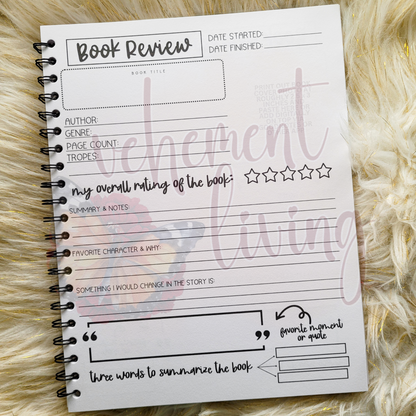 Book Review
DATE STARTED:
DATE FINISHED:
BOOK TITLE
AUTHOR:
GENRE:
PAGE COUNT:
TROPES:
my overall rating of the book:
SUMMARY & NOTES:
FAVORITE CHARACTER & WHY:
SOMETHING I WOULD CHANGE IN THE STORY IS:
“ ”
favorite moment
or quote
three words to summarize the book
vehement
living